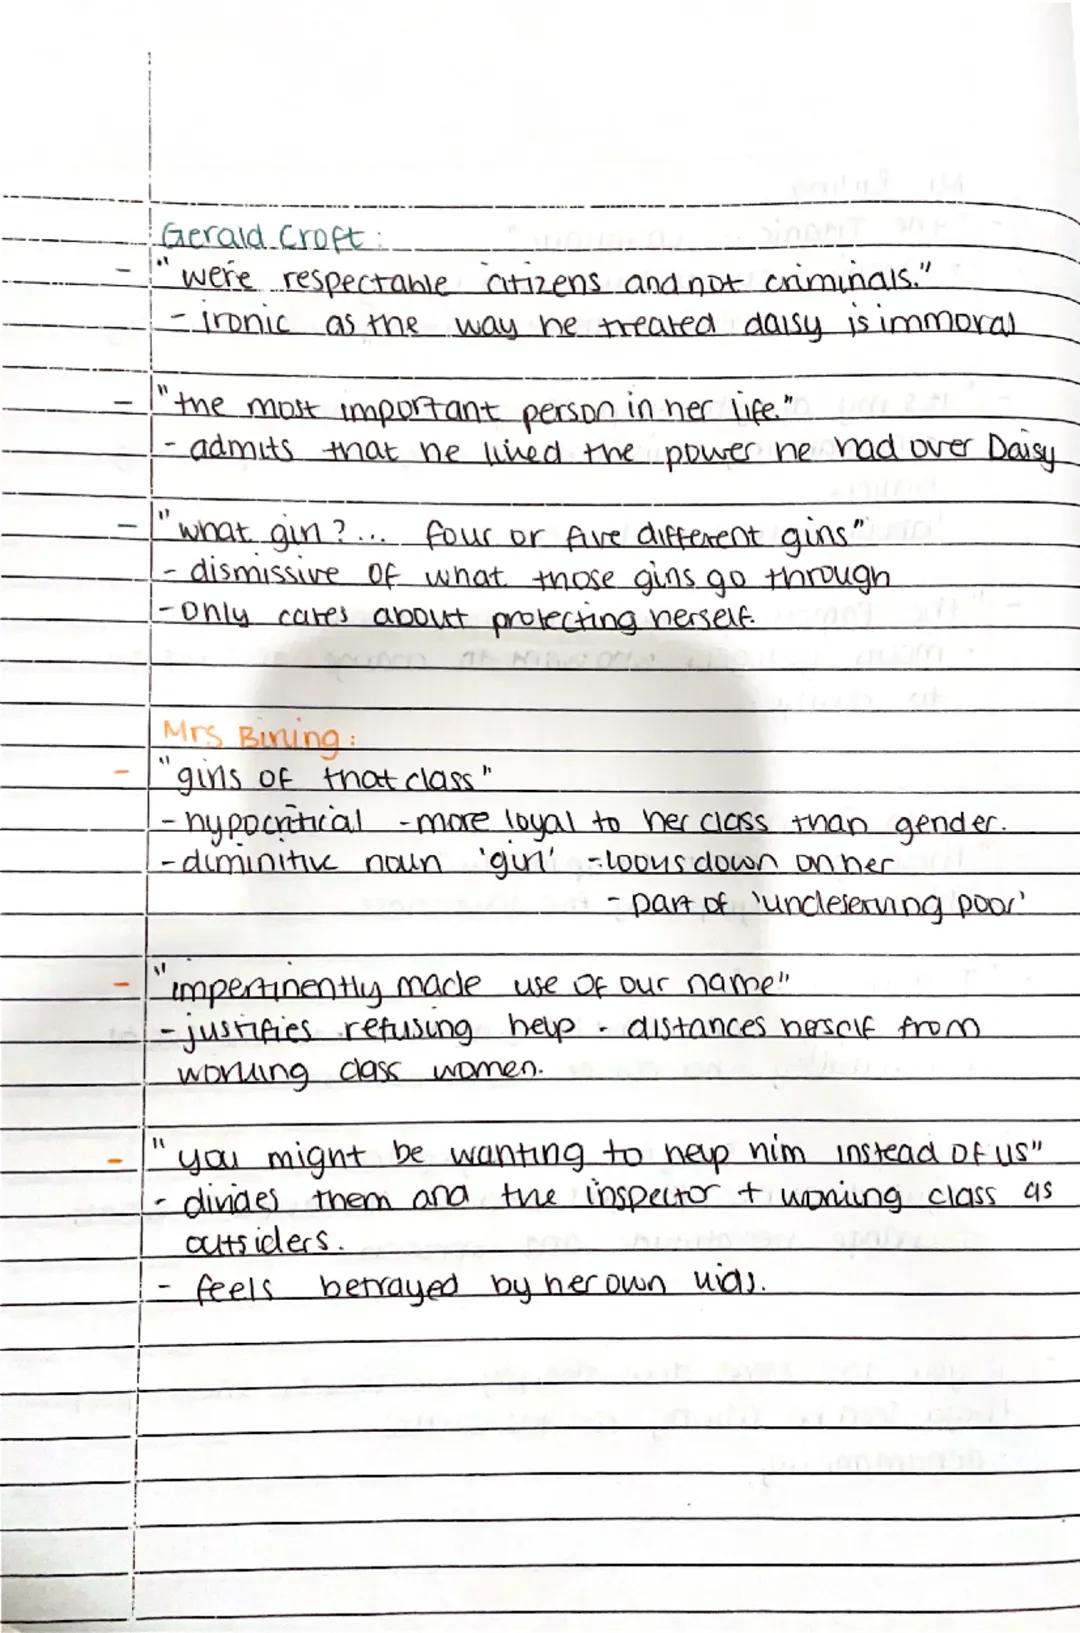 Gerald Croft:
- "were respectable citizens and not criminals."
- ironic as the way he treated daisy is immoral
- "the most important person in her life."
- admits that he liked the power he had over Daisy
- "what girl?... four or five different girls"
- dismissive of what those girls go through
- only cares about protecting herself.
Mrs Birling:
- "girls of that class"
- hypocritical - more loyal to her class than gender.
- diminitive noun 'girl' - looks down on her
- part of 'undeserving poor'
- "impertinently made use of our name"
- justifies refusing help - distances herself from
working class women.
- "you might be wanting to help him instead of us"
- divides them and the inspector + working class as
outsiders.
- feels betrayed by her own kids.